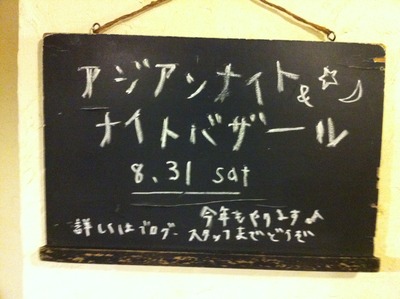 アジアンナイト& ☆☽
ナイトバザール
8.31 sat
今年もやります♪
詳しくはブログ-スタッフまでどうぞ